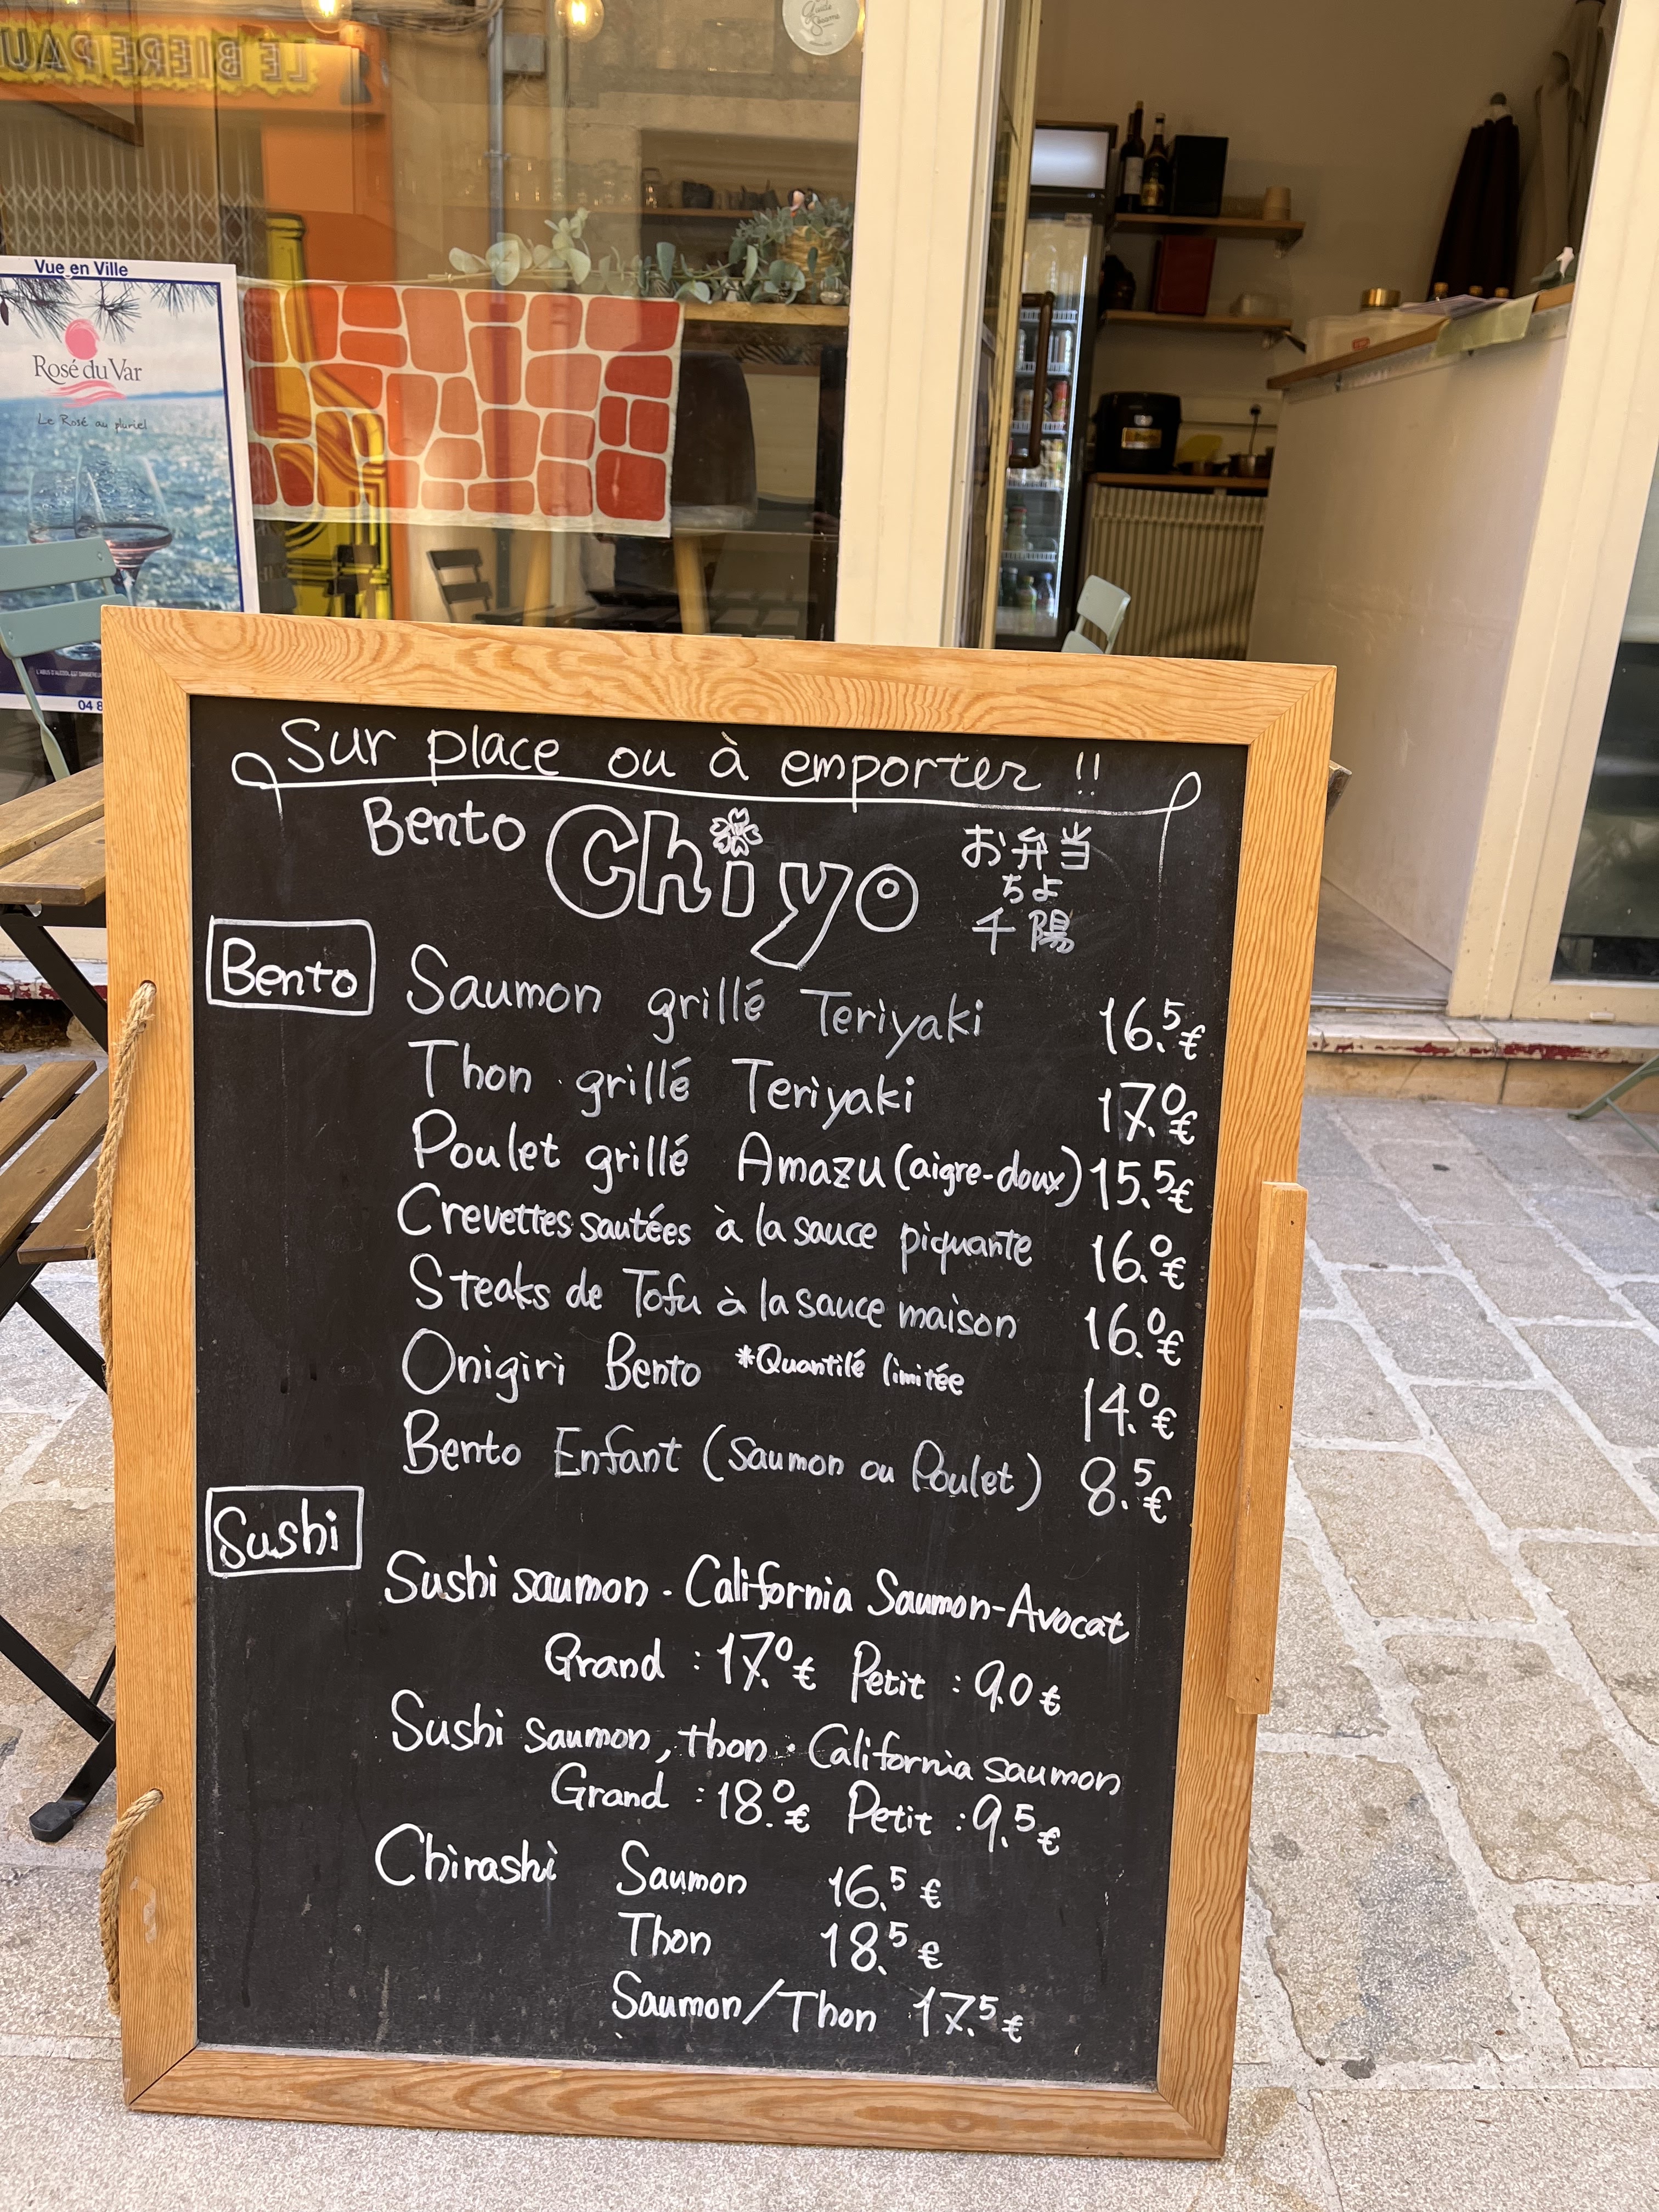 LE BIERE PAU
Guide
Vue en Ville
Rosé du Var
Le Rosé au pluriel
04 8
Sur place ou à emporter !!
Bento Chiyo
お弁当
ちよ
千陽
Bento
Saumon grillé Teriyaki 16.5€
Thon grillé Teriyaki 17.0€
Poulet grillé Amazu (aigre-doux) 15.5€
Crevettes sautées à la sauce piquante 16.0€
Steaks de Tofu à la sauce maison 16.0€
Onigiri Bento *Quantité limitée 14.0€
Bento Enfant (Saumon ou Poulet) 8.5€
Sushi
Sushi saumon · California Saumon-Avocat
Grand : 17.0€ Petit : 9.0€
Sushi saumon, thon · California saumon
Grand : 18.0€ Petit : 9.5€
Chirashi Saumon 16.5€
Thon 18.5€
Saumon/Thon 17.5€